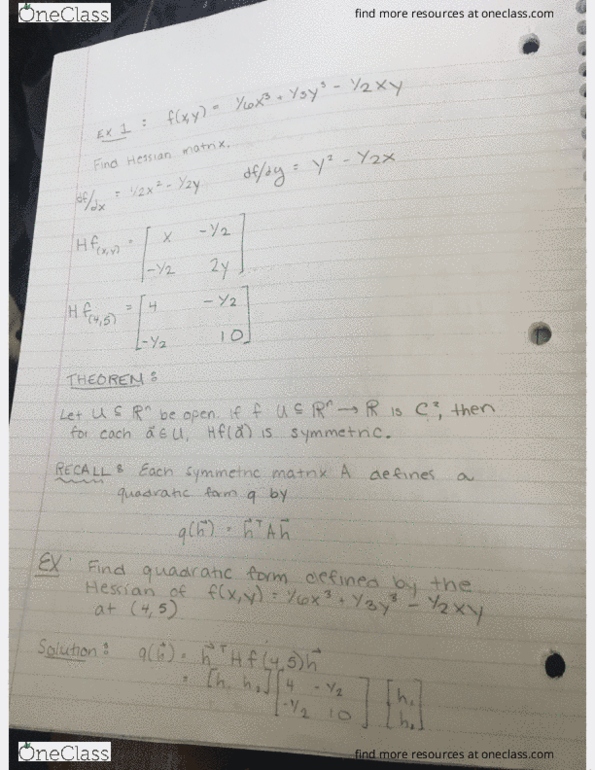 OneClass
find more resources at oneclass.com
EX 1 : f(x,y) = 1/6x³ + 1/3y³ - 1/2xy
Find Hessian matrix.
df/dx = 1/2x² - 1/2y df/dy = y² - 1/2x
Hf(x,y) = [ x -1/2
-1/2 2y ]
Hf(4,5) = [ 4 -1/2
-1/2 10 ]
THEOREM:
Let U ⊆ Rⁿ be open. If f U ⊆ Rⁿ → R is C², then
for each a⃗ ∈ U, Hf(a⃗) is symmetric.
RECALL: Each symmetric matrix A defines a
quadratic form q by
q(h⃗) = h⃗ᵀAh⃗
EX: Find quadratic form defined by the
Hessian of f(x,y) = 1/6x³ + 1/3y³ - 1/2xy
at (4,5)
Solution: q(h⃗) = h⃗ᵀHf(4,5)h⃗
= [h₁ h₂] [ 4 -1/2 [ h₁
-1/2 10 ] h₂ ]
OneClass
find more resources at oneclass.com